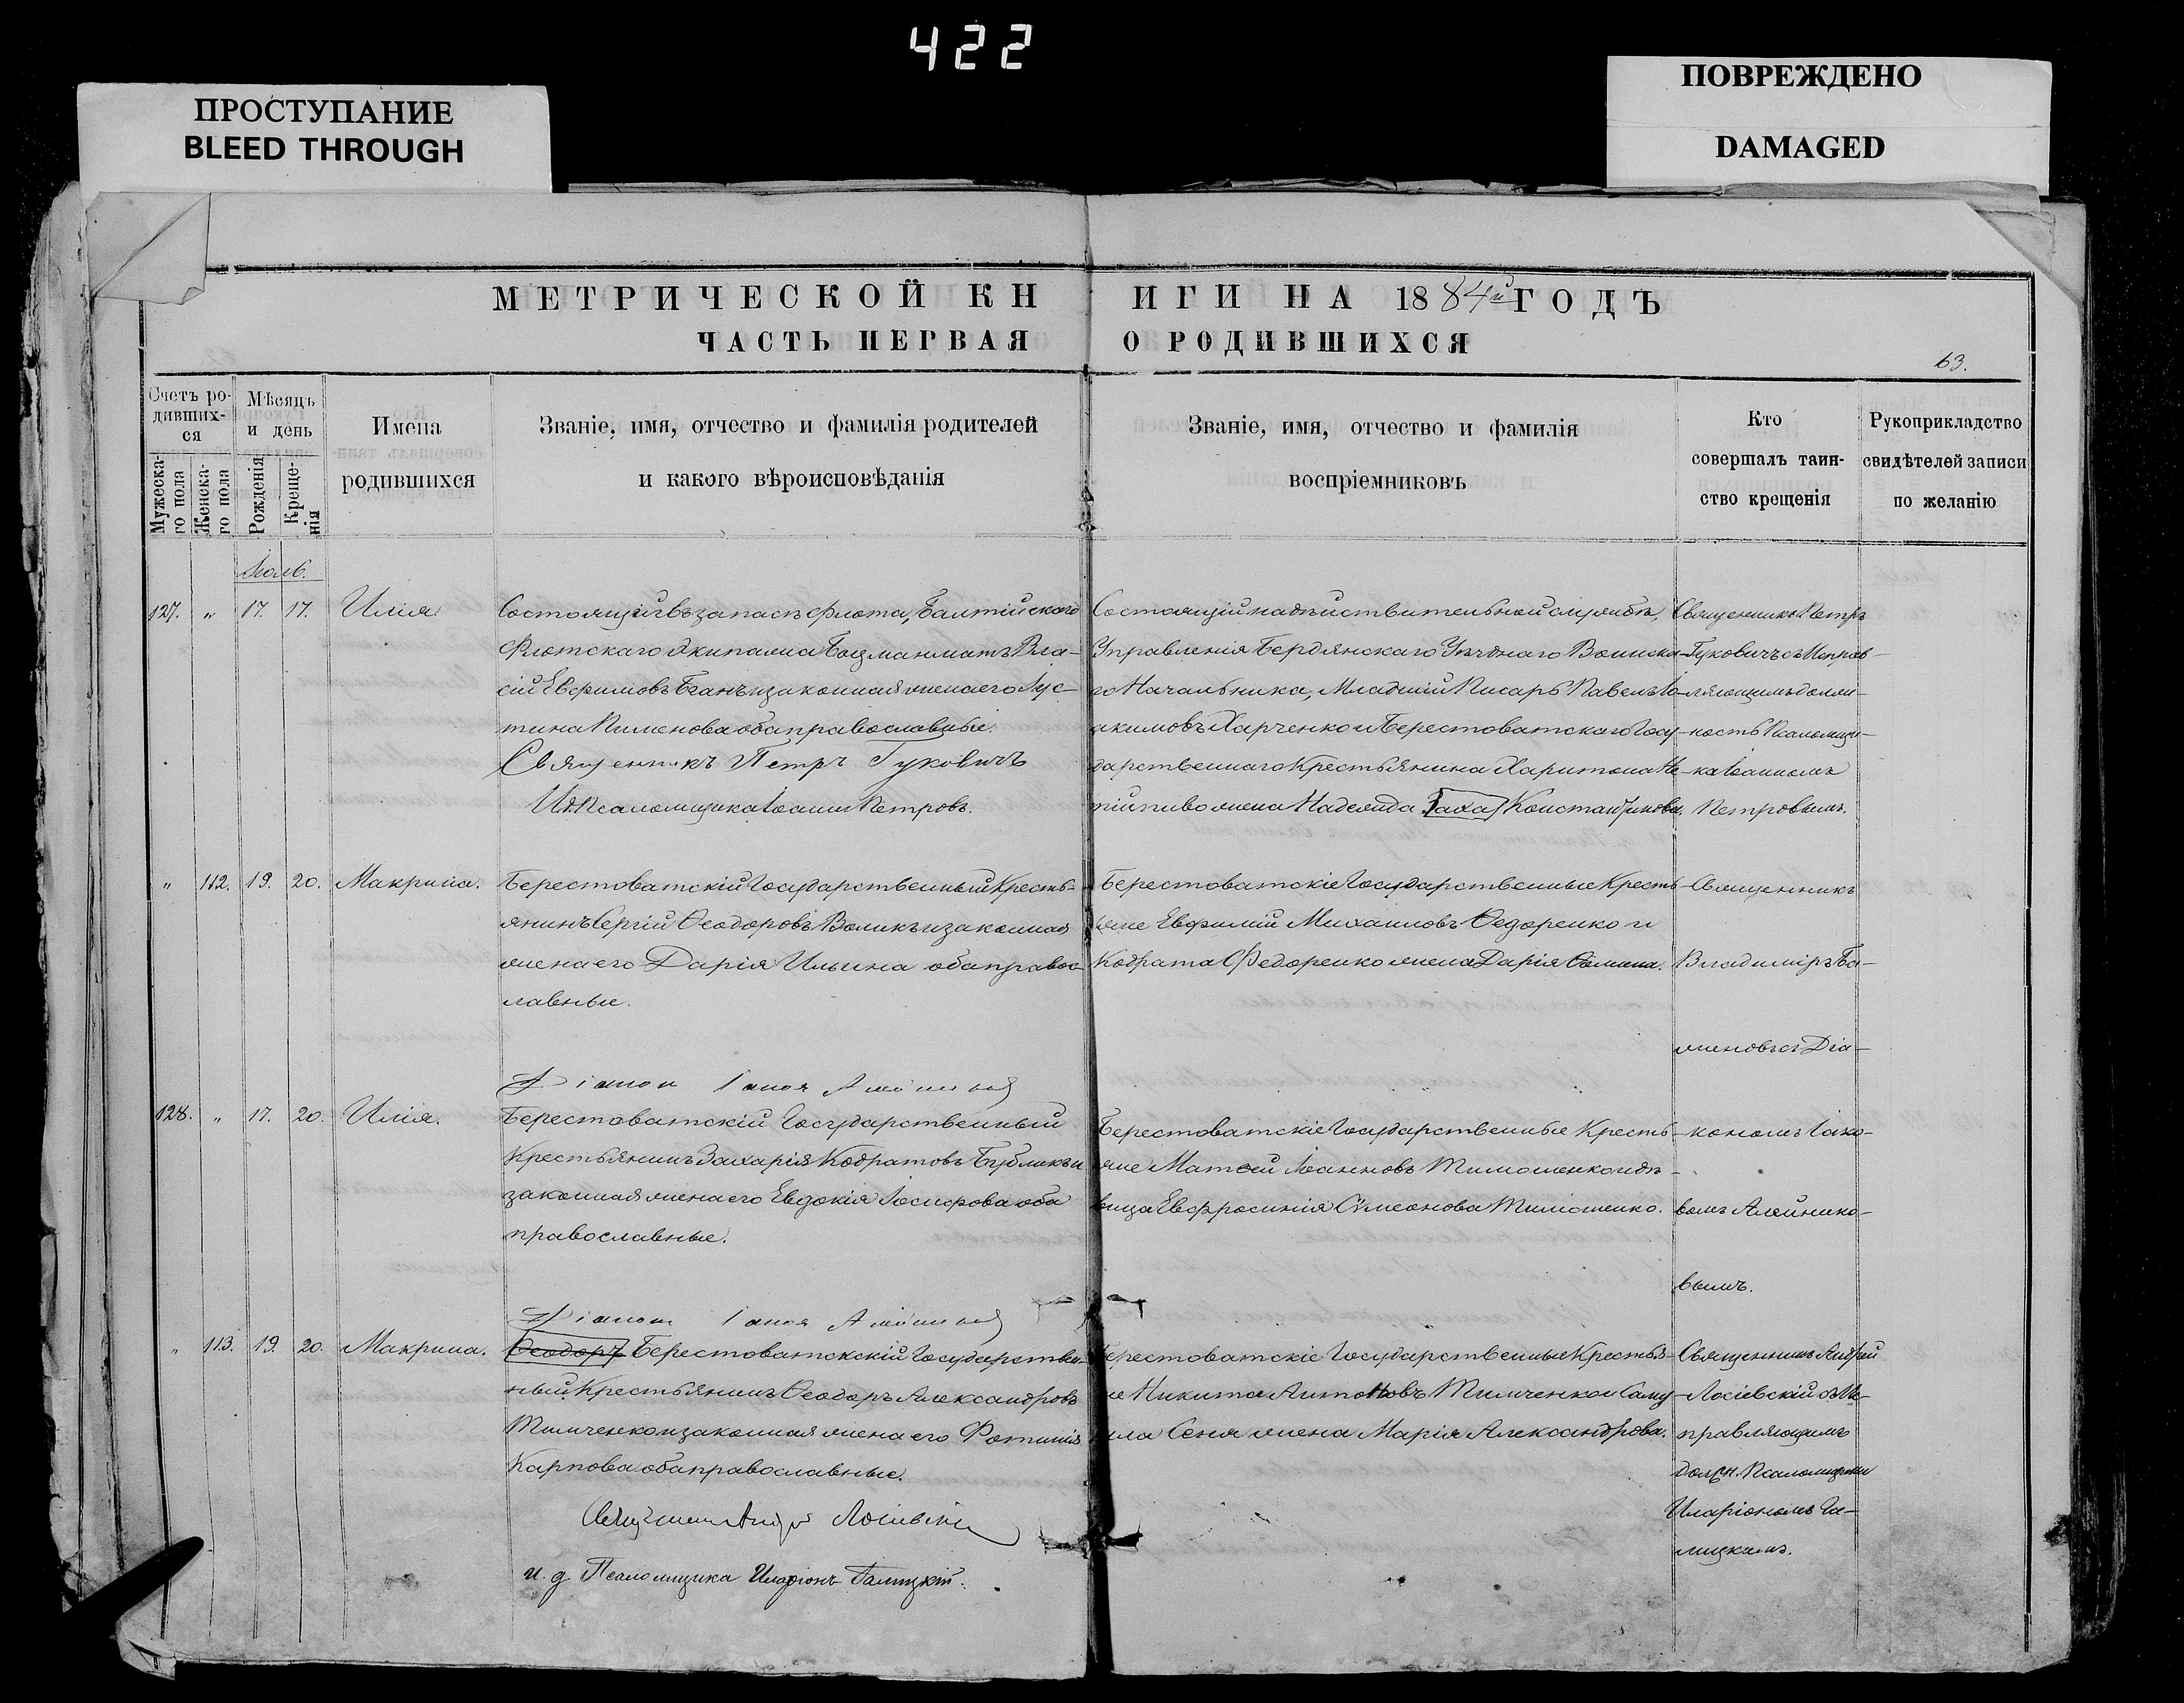 422
ПРОСТУПАНИЕ
BLEED THROUGH
ПОВРЕЖДЕНО
DAMAGED
МЕТРИЧЕСКОЙ КНИГИ НА 1884й ГОДЪ
ЧАСТЬ ПЕРВАЯ О РОДИВШИХСЯ
63.
Счетъ ро-
дивших-
ся
Мужеска-
го пола
Женска-
го пола
Мѣсяцъ
и день
Рожденія
Креще-
нія
Имена
родившихся
Званіе, имя, отчество и фамилія родителей
и какого вѣроисповѣданія
Званіе, имя, отчество и фамилія
воспріемниковъ
Кто
совершалъ таин-
ство крещенія
Рукоприкладство
свидѣтелей записи
по желанію
Іюль.
127. " 17. 17. Илія
Состоящій въ запасѣ флота, Балтійскаго
Флотскаго Экипажа Боцманматъ Вла-
сій Евфимовъ Баганъ и законная жена его Іус-
тина Пименова оба православные.
Священникъ Петръ Гуковичъ
И.д. Псаломщика Іоаннъ Петровъ.
Состоящій на дѣйствительной службѣ,
Управленія Бердянскаго Уѣзднаго Воинска-
го Начальника, Младшій Писарь Павелъ Іо-
акимовъ Харченко и Берестоватскаго Госу-
дарственнаго Крестьянина Харитона Не-
пійпиво жена Надежда Константинова.
Священникъ Петръ
Гуковичъ съ Исправ-
ляющимъ долж-
ность Псаломщи-
ка Іоанномъ
Петровымъ.
" 112. 19. 20. Макрина.
Берестоватскій Государственный Кресть-
янинъ Сергій Ѳеодоровъ Воликъ и законная
жена его Дарія Ильина оба правос-
лавные.
Діаконъ Іаковъ Алейниковъ
Берестоватскіе Государственные Кресть-
яне Евфимій Михаиловъ Ѳедоренко и
Кодрата Федоренко жена Дарія Ѳомина.
Священникъ
Владиміръ Ба-
женовъ съ Діа-
кономъ Іако-
вомъ Алейнико-
вымъ.
128. " 17. 20. Илія.
Берестоватскій Государственный
Крестьянинъ Захарія Кодратовъ Бубликъ и
законная жена его Евдокія Іосифова оба
православные.
Діаконъ Іаковъ Алейниковъ
Берестоватскіе Государственные Кресть-
яне Матѳей Іоанновъ Тимошенко и дѣ-
вица Евфросинія Сѵмеонова Тимошенко.
" 113. 19. 20. Макрина.
Ѳеодоръ Берестоватскскій Государствен-
ный Крестьянинъ Ѳеодоръ Александровъ
Тимченко и законная жена его Фотинія
Карпова оба православные.
Священникъ Андрей Лосіевскій
и. д. Псаломщика Иларіонъ Галицкій.
Берестоватскіе Государственные Крестья-
не Никита Антоновъ Тимченко и Саму-
ила Сеня жена Марія Александрова.
Священникъ Андрей
Лосіевскій съ Ис-
правляющимъ
должн. Псаломщика
Иларіономъ Га-
лицкимъ.